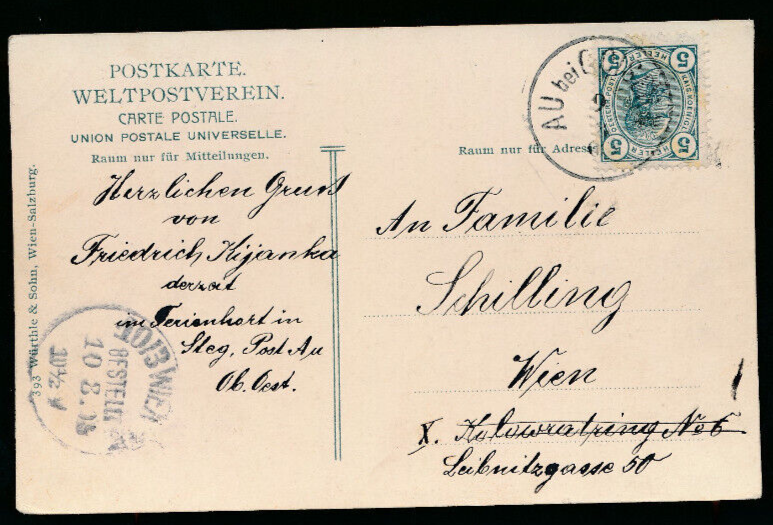 POSTKARTE.
WELTPOSTVEREIN.
CARTE POSTALE.
UNION POSTALE UNIVERSELLE.
Raum nur für Mitteilungen.
Herzlichen Gruss
von
Friedrich Kijanka
derzeit
im Ferienhort in
Steg, Post Au
Ob. Oest.
393 Würthle & Sohn, Wien-Salzburg.
10/3 WIEN
BESTELLT
10. 8. 08
10½ V
AU bei
5 HELLER 5
5 HELLER 5
Raum nur für Adresse
An Familie
Schilling
Wien
X. Kolowratring No 6
Leibnitzgasse 50